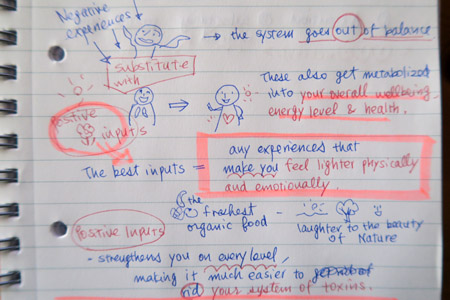 Negative
experiences
→ the system goes out of balance
substitute
with
Positive
inputs
⇒
These also get metabolized
into your overall wellbeing,
energy level & health.
The best inputs =
any experiences that
make you feel lighter physically
and emotionally.
Positive Inputs
the freshest
organic food -
laughter to the beauty
of Nature
- strengthens you on every level,
making it much easier to
rid your system of toxins.